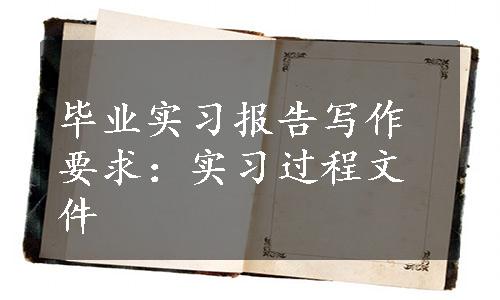 毕业实习报告写作
要求：实习过程文
件